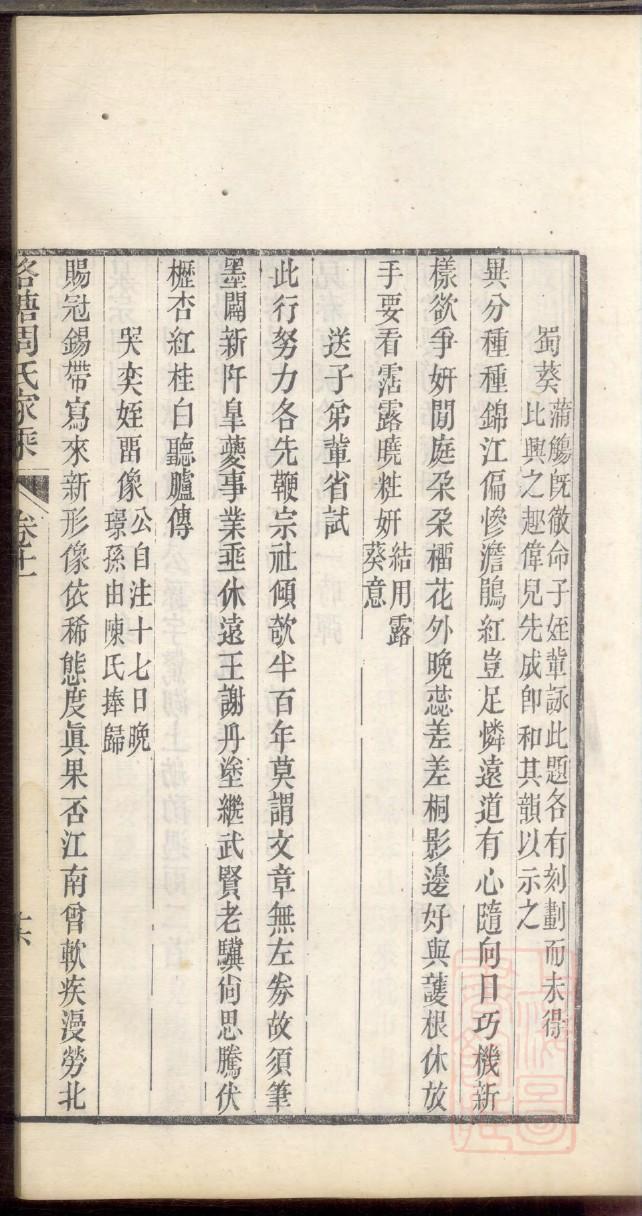 蜀葵
蒲觴旣徹命子姪輩詠此題各有刻劃而未得
比興之趣偉兒先成卽和其韻以示之
異分種種錦江偏慘澹鵑紅豈足憐遠道有心隨向日巧機新
樣欲爭妍閒庭朶朶榴花外晚蕊差差桐影邊好與護根休放
手要看霑露曉粧妍
結用露
葵意
送子弟輩省試
此行努力各先鞭宗社傾欹半百年莫謂文章無左劵故須筆
墨闢新阡臯夔事業垂休遠王謝丹塗繼武賢老驥尙思騰伏
櫪杏紅桂白聽臚傳
哭奕姪畱像
公自注十七日晚
璟孫由陳氏捧歸
賜冠錫帶寫來新形像依稀態度眞果否江南曾軟疾漫勞北
洛塘周氏家乘
卷十一